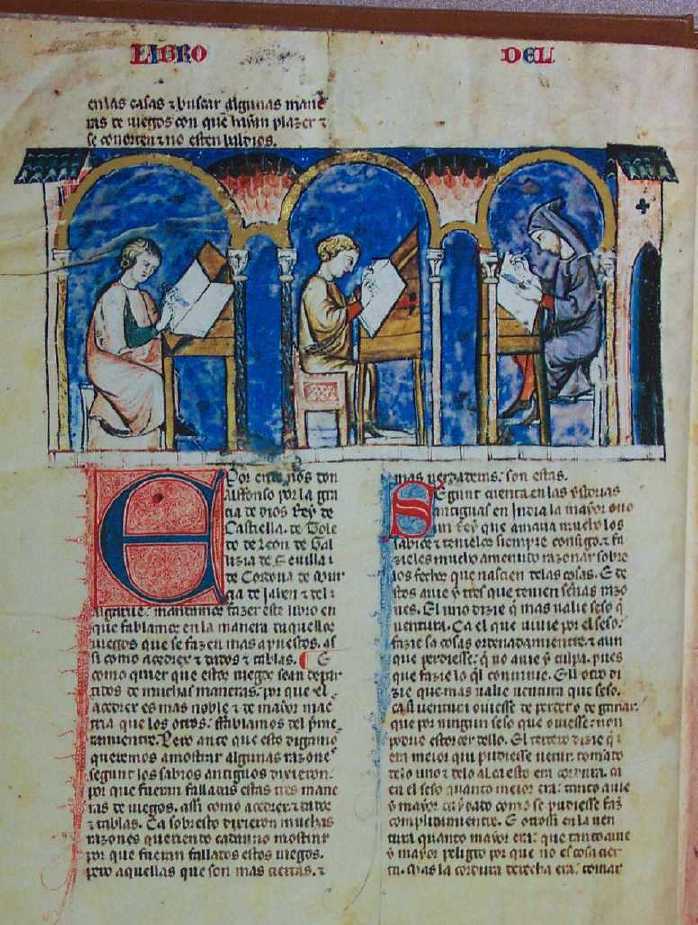 LIBRO DEL
en las casas & buscar algunas mane
ras de iuegos con que hayan plazer &
se conorten & no esten baldios.
Por ende nos don
alffonso por la gra
cia de dios Rey de
Castiella. de Tole
do de Leon de Gal
lizia de Seuilla
de Cordoua de Mur
cia de Jahen & del
algarue. mandamos fazer este libro en
que fablamos en la manera daquellos
iuegos que se fazen mas apuestos. as
si como acedrex & dados & tablas. E
como quier que estos iuegos sean depar
tidos de muchas maneras. por que el
acedrex es mas noble & de mayor mae
tria que los otros. ffablamos del prime
ramientre. Pero ante que esto digamos
queremos amostrar algunas razones
segunt los sabios antiguos dixieron.
por que fueran fallados estas tres mane
ras de iuegos. assi como acedrex & dados
& tablas. Ca sobresto dixieron muchas
razones queriendo cadauno mostrar
por que fueran fallados estos iuegos.
pero aquellas que son mas ciertas. &
mas uerdaderas. son estas.
Segunt cuenta en las ystorias
antiguas en India la mayor ouo
un Rey que amaua mucho los
sabios & tenielos siempre consigo. & fa
zieles mucho amenudo razonar sobre
los fechos que nascien delas cosas. E de
stos auie y tres que tenien senas razo
nes. El uno dizie q̃ mas ualie seso q̃
uentura. Ca el que uiuie por el seso.
fazie sus cosas ordenadamientre. & aun
que perdiesse. q̃ no auie y culpa. pues
que fazie lo q̃l conuinie. Ell otro di
zie que mas ualie uentura que seso.
ca si uentura ouiesse de perder o de ganar.
que por ningun seso que ouiesse. non
podrie estorcer dello. El tercero dizie q̃
era meior qui pudiesse ueuir tomando
delo uno & delo al ca esto era cordura. ca
en el seso quanto meior era. tanto auie
y mayor cuydado como se pudiesse faz
complidamientre. E otrossi en la uen
tura quanto mayor era. que tanto auie
y mayor peligro por que no es cosa cier
ta. Mas la cordura derecha era. tomar